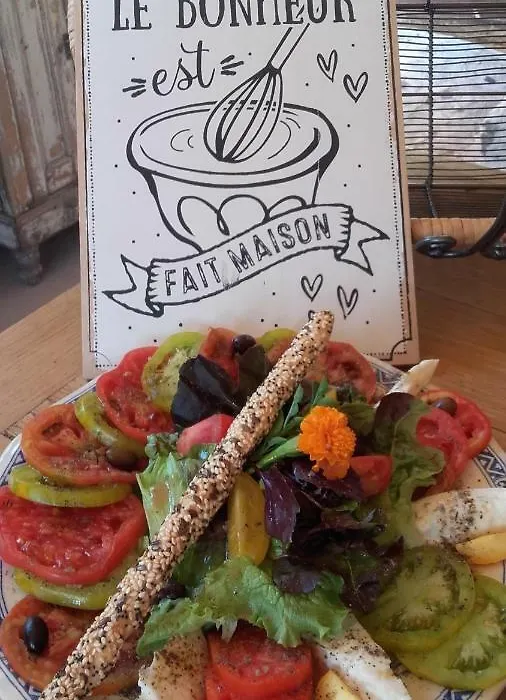 LE BONHEUR
est
FAIT MAISON